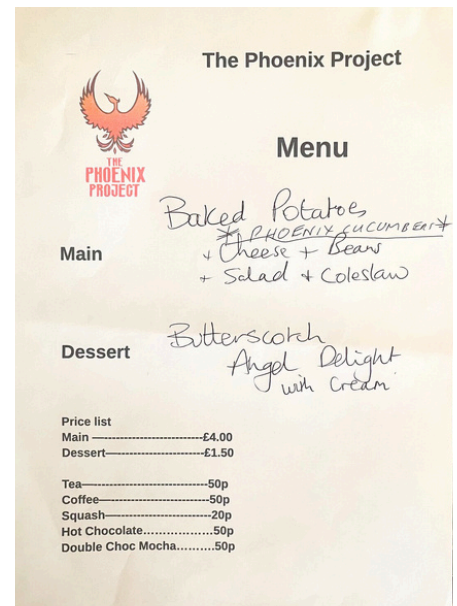 The Phoenix Project
THE
PHOENIX
PROJECT
Menu
Main
Baked Potatoes
* PHOENIX CUCUMBER *
+ Cheese + Beans
+ Salad + Coleslaw
Dessert
Butterscotch
Angel Delight
with Cream
Price list
Main —---------------------------£4.00
Dessert—------------------------£1.50
Tea—-------------------------------50p
Coffee—---------------------------50p
Squash—--------------------------20p
Hot Chocolate………………50p
Double Choc Mocha……….50p